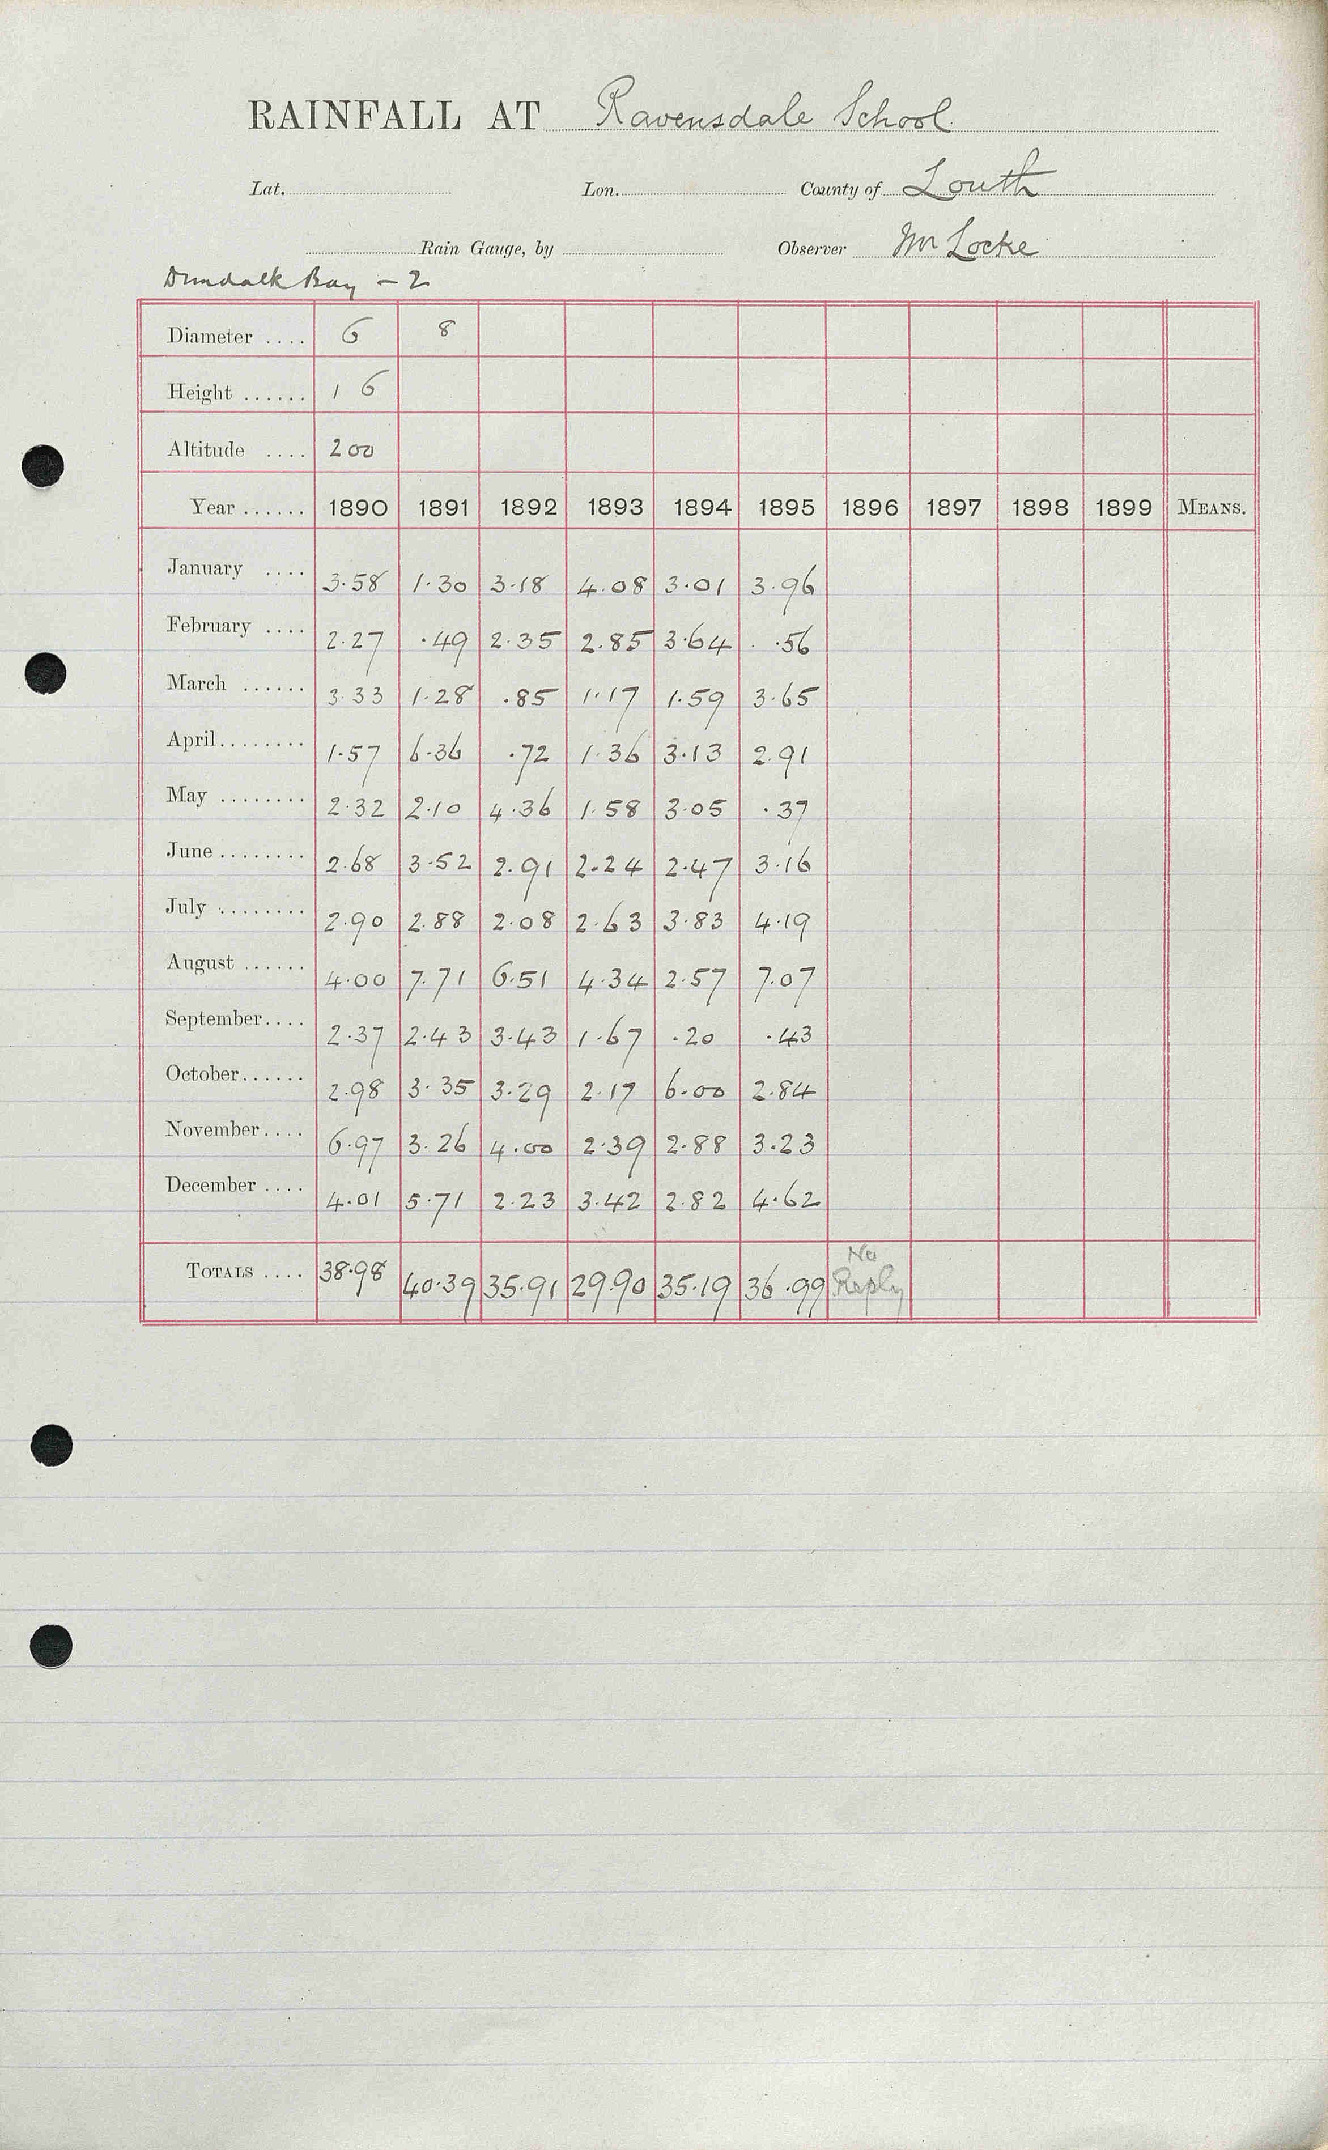 RAINFALL AT Ravensdale School.
Lat. Lon. County of Louth
Rain Gauge, by Observer Mr Locke
Dundalk Bay - 2
Diameter .... 6 8
Height ...... 1 6
Altitude .... 200
Year ...... 1890 1891 1892 1893 1894 1895 1896 1897 1898 1899 MEANS.
January .... 3.58 1.30 3.18 4.08 3.01 3.96
February .... 2.27 .49 2.35 2.85 3.64 .56
March ...... 3.33 1.28 .85 1.17 1.59 3.65
April........ 1.57 6.36 .72 1.36 3.13 2.91
May ........ 2.32 2.10 4.36 1.58 3.05 .37
June ........ 2.68 3.52 2.91 2.24 2.47 3.16
July ........ 2.90 2.88 2.08 2.63 3.83 4.19
August ...... 4.00 7.71 6.51 4.34 2.57 7.07
September.... 2.37 2.43 3.43 1.67 .20 .43
October...... 2.98 3.35 3.29 2.17 6.00 2.84
November.... 6.97 3.26 4.00 2.39 2.88 3.23
December .... 4.01 5.71 2.23 3.42 2.82 4.62
TOTALS .... 38.98 40.39 35.91 29.90 35.19 36.99 No Reply